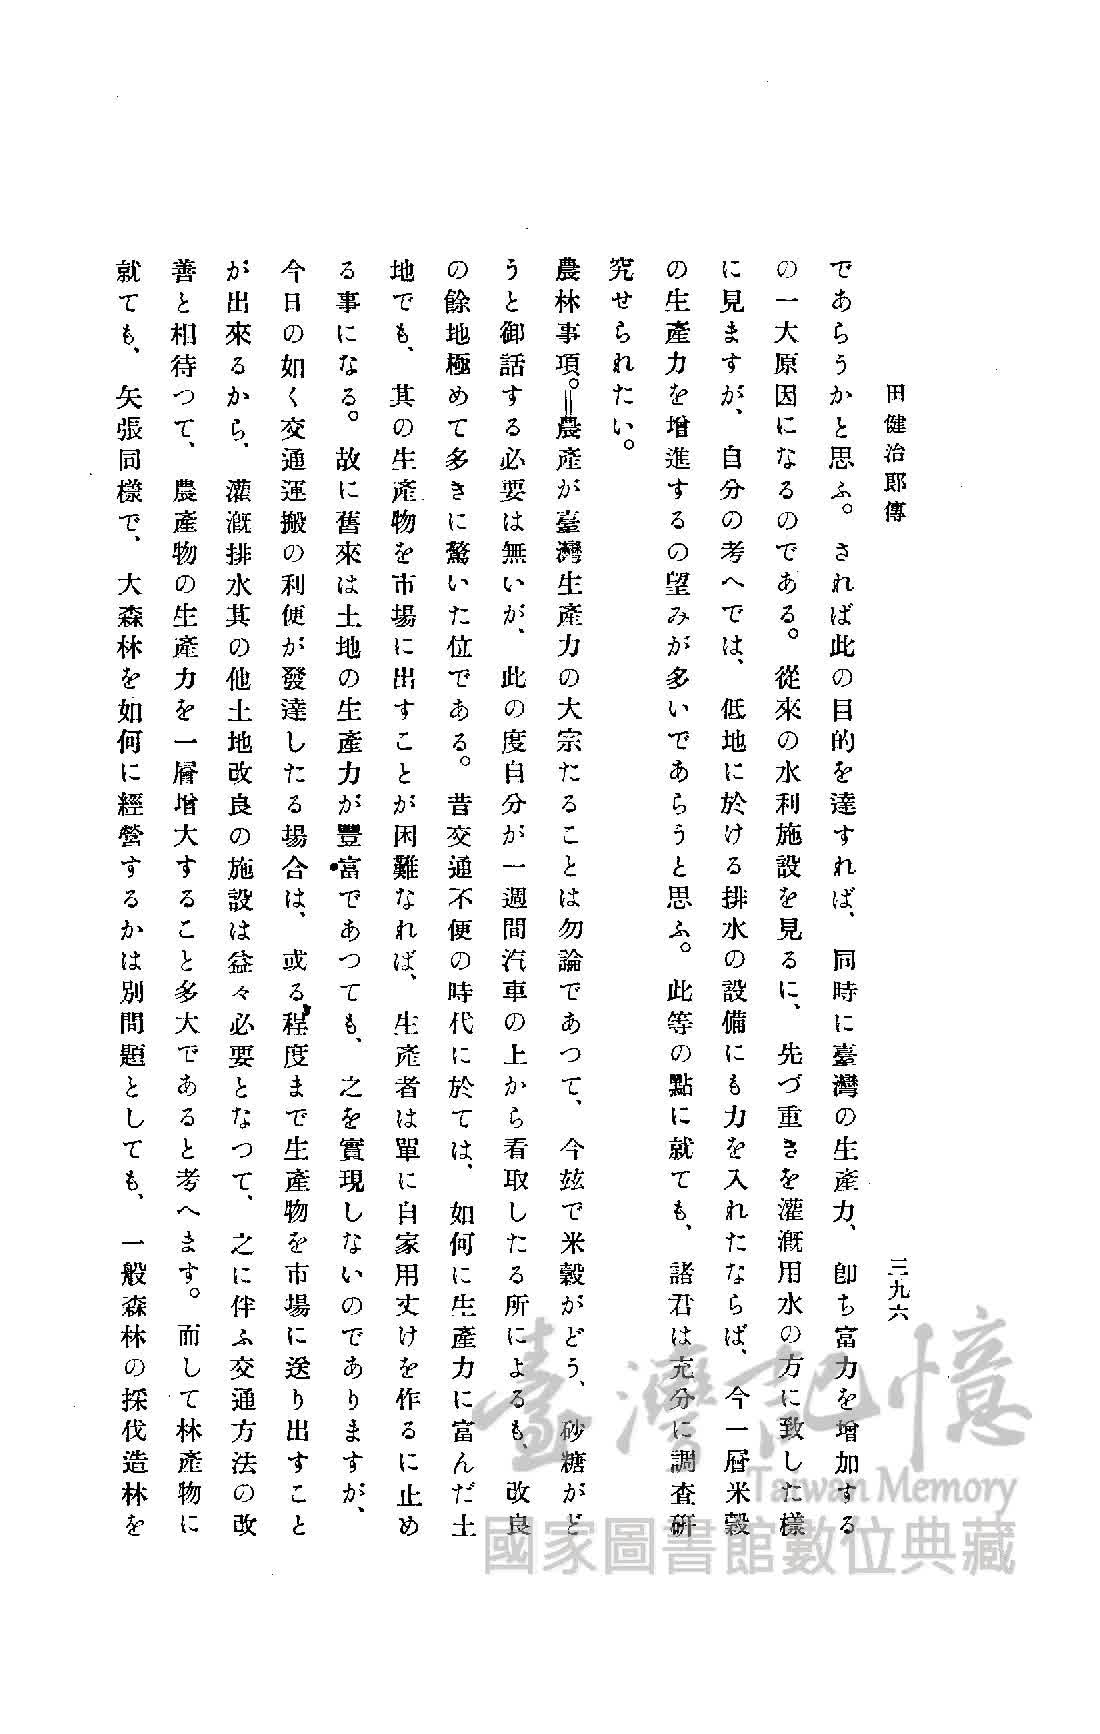 田健治郎傳
三九六
であらうかと思ふ。されば此の目的を達すれば、同時に臺灣の生產力、卽ち富力を增加する
の一大原因になるのである。從來の水利施設を見るに、先づ重きを灌漑用水の方に致した樣
に見ますが、自分の考へでは、低地に於ける排水の設備にも力を入れたならば、今一層米穀
の生產力を增進するの望みが多いであらうと思ふ。此等の點に就ても、諸君は充分に調査硏
究せられたい。
農林事項。‖農產が臺灣生產力の大宗たることは勿論であつて、今玆で米穀がどう、砂糖がど
うと御話する必要は無いが、此の度自分が一週間汽車の上から看取したる所によるも、改良
の餘地極めて多きに驚いた位である。昔交通不便の時代に於ては、如何に生產力に富んだ土
地でも、其の生產物を市場に出すことが困難なれば、生產者は單に自家用丈けを作るに止め
る事になる。故に舊來は土地の生產力が豐富であつても、之を實現しないのでありますが、
今日の如く交通運搬の利便が發達したる場合は、或る程度まで生產物を市場に送り出すこと
が出來るから、灌漑排水其の他土地改良の施設は益々必要となつて、之に伴ふ交通方法の改
善と相待つて、農產物の生產力を一層增大すること多大であると考へます。而して林產物に
就ても、矢張同樣で、大森林を如何に經營するかは別問題としても、一般森林の採伐造林を
臺灣記憶
Taiwan Memory
國家圖書館數位典藏